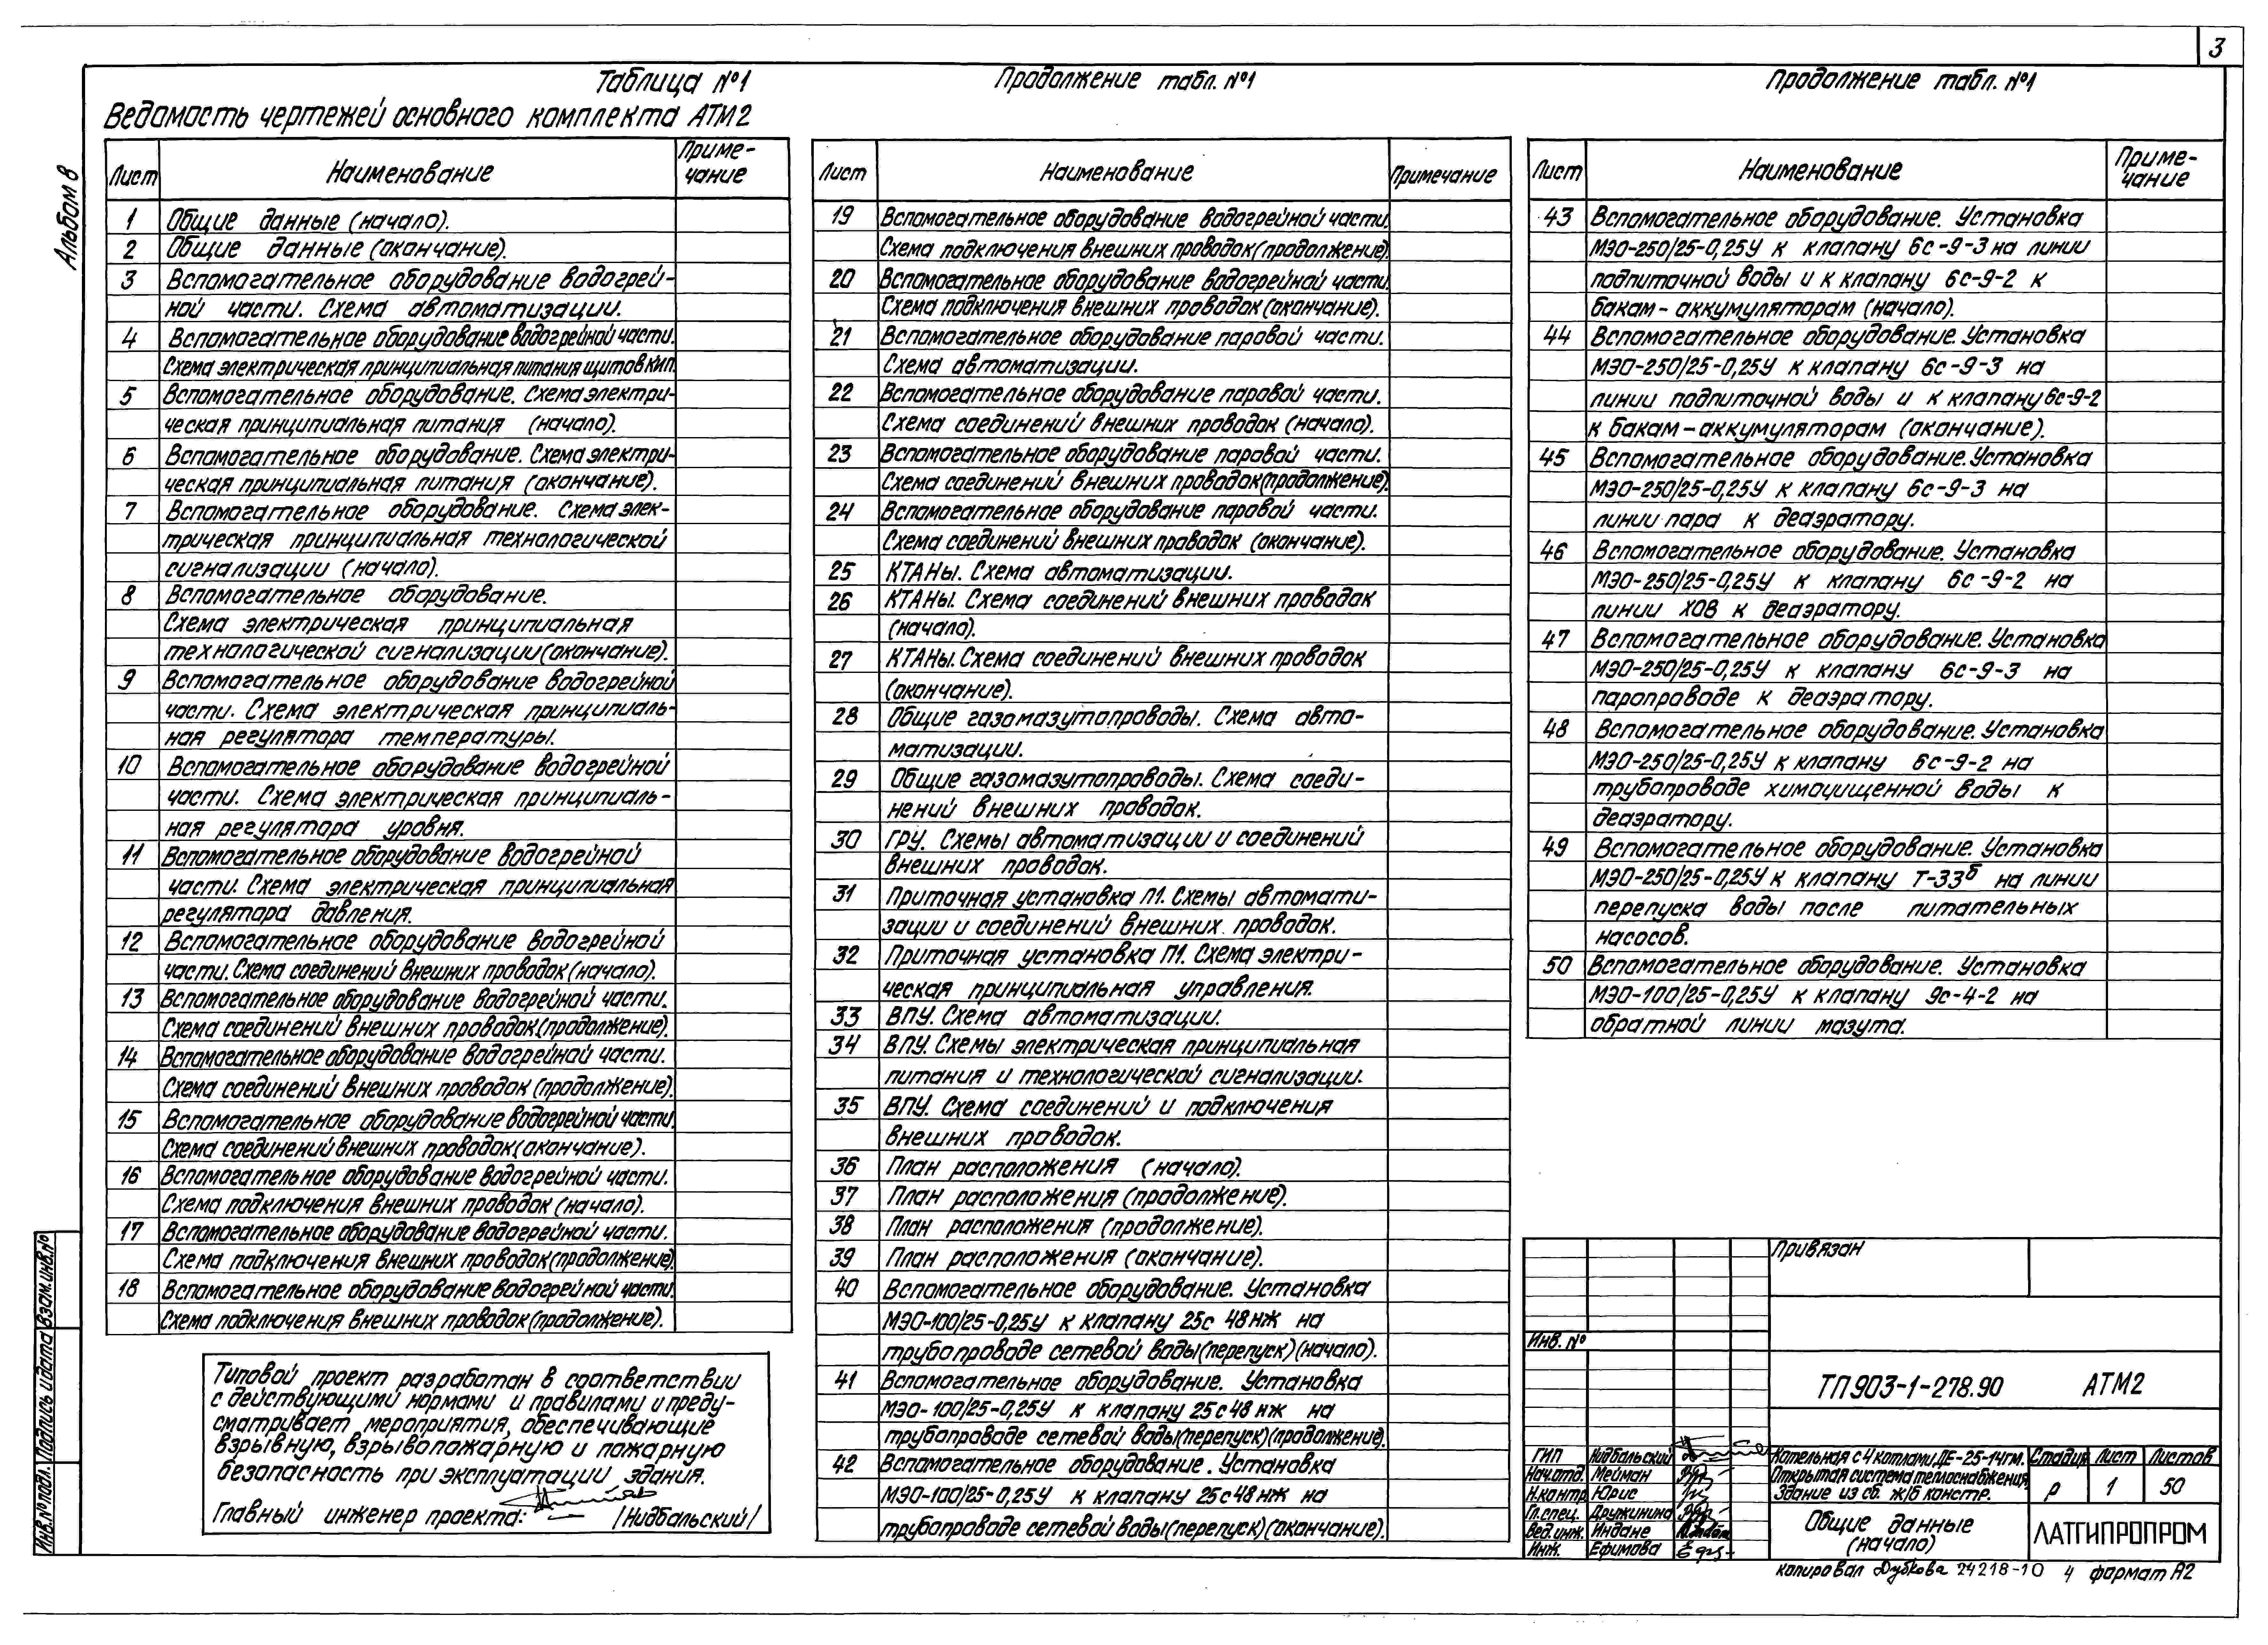 3
Альбом 8
Таблица №1
Ведомость чертежей основного комплекта АТМ2
Лист Наименование Приме-
чание
1 Общие данные (начало).
2 Общие данные (окончание).
3 Вспомогательное оборудование водогрей-
ной части. Схема автоматизации.
4 Вспомогательное оборудование водогрейной части.
Схема электрическая принципиальная питания щитов КИП.
5 Вспомогательное оборудование. Схема электри-
ческая принципиальная питания (начало).
6 Вспомогательное оборудование. Схема электри-
ческая принципиальная питания (окончание).
7 Вспомогательное оборудование. Схема элек-
трическая принципиальная технологической
сигнализации (начало).
8 Вспомогательное оборудование.
Схема электрическая принципиальная
технологической сигнализации (окончание).
9 Вспомогательное оборудование водогрейной
части. Схема электрическая принципиаль-
ная регулятора температуры.
10 Вспомогательное оборудование водогрейной
части. Схема электрическая принципиаль-
ная регулятора уровня.
11 Вспомогательное оборудование водогрейной
части. Схема электрическая принципиальная
регулятора давления.
12 Вспомогательное оборудование водогрейной
части. Схема соединений внешних проводок (начало).
13 Вспомогательное оборудование водогрейной части.
Схема соединений внешних проводок (продолжение).
14 Вспомогательное оборудование водогрейной части.
Схема соединений внешних проводок (продолжение).
15 Вспомогательное оборудование водогрейной части.
Схема соединений внешних проводок (окончание).
16 Вспомогательное оборудование водогрейной части.
Схема подключения внешних проводок (начало).
17 Вспомогательное оборудование водогрейной части.
Схема подключения внешних проводок (продолжение).
18 Вспомогательное оборудование водогрейной части.
Схема подключения внешних проводок (продолжение).
Типовой проект разработан в соответствии
с действующими нормами и правилами и преду-
сматривает мероприятия, обеспечивающие
взрывную, взрывопожарную и пожарную
безопасность при эксплуатации здания.
Главный инженер проекта: /Нидбальский/
Продолжение табл. №1
Лист Наименование Примечание
19 Вспомогательное оборудование водогрейной части.
Схема подключения внешних проводок (продолжение)
20 Вспомогательное оборудование водогрейной части.
Схема подключения внешних проводок (окончание).
21 Вспомогательное оборудование паровой части.
Схема автоматизации.
22 Вспомогательное оборудование паровой части.
Схема соединений внешних проводок (начало).
23 Вспомогательное оборудование паровой части.
Схема соединений внешних проводок (продолжение).
24 Вспомогательное оборудование паровой части.
Схема соединений внешних проводок (окончание).
25 КТАНы. Схема автоматизации.
26 КТАНы. Схема соединений внешних проводок
(начало).
27 КТАНы. Схема соединений внешних проводок
(окончание).
28 Общие газомазутопроводы. Схема авто-
матизации.
29 Общие газомазутопроводы. Схема соеди-
нений внешних проводок.
30 ГРУ. Схемы автоматизации и соединений
внешних проводок.
31 Приточная установка П1. Схемы автомати-
зации и соединений внешних проводок.
32 Приточная установка П1. Схема электри-
ческая принципиальная управления.
33 ВПУ. Схема автоматизации.
34 ВПУ. Схемы электрическая принципиальная
питания и технологической сигнализации.
35 ВПУ. Схема соединений и подключения
внешних проводок.
36 План расположения (начало).
37 План расположения (продолжение).
38 План расположения (продолжение).
39 План расположения (окончание).
40 Вспомогательное оборудование. Установка
МЭО-100/25-0,25У к клапану 25с 48нж на
трубопроводе сетевой воды (перепуск) (начало).
41 Вспомогательное оборудование. Установка
МЭО-100/25-0,25У к клапану 25с48нж на
трубопроводе сетевой воды (перепуск) (продолжение).
42 Вспомогательное оборудование. Установка
МЭО-100/25-0,25У к клапану 25с48нж на
трубопроводе сетевой воды (перепуск) (окончание).
Продолжение табл. №1
Лист Наименование Приме-
чание
43 Вспомогательное оборудование. Установка
МЭО-250/25-0,25У к клапану 6с-9-3 на линии
подпиточной воды и к клапану 6с-9-2 к
бакам-аккумуляторам (начало).
44 Вспомогательное оборудование. Установка
МЭО-250/25-0,25У к клапану 6с-9-3 на
линии подпиточной воды и к клапану 6с-9-2
к бакам-аккумуляторам (окончание).
45 Вспомогательное оборудование. Установка
МЭО-250/25-0,25У к клапану 6с-9-3 на
линии пара к деаэратору.
46 Вспомогательное оборудование. Установка
МЭО-250/25-0,25У к клапану 6с-9-2 на
линии ХОВ к деаэратору.
47 Вспомогательное оборудование. Установка
МЭО-250/25-0,25У к клапану 6с-9-3 на
паропроводе к деаэратору.
48 Вспомогательное оборудование. Установка
МЭО-250/25-0,25У к клапану 6с-9-2 на
трубопроводе химочищенной воды к
деаэратору.
49 Вспомогательное оборудование. Установка
МЭО-250/25-0,25У к клапану Т-33б на линии
перепуска воды после питательных
насосов.
50 Вспомогательное оборудование. Установка
МЭО-100/25-0,25У к клапану 9с-4-2 на
обратной линии мазута.
Привязан
Инв. №
ТП 903-1-278.90 АТМ2
ГИП Нидбальский
Нач.отд. Мейман
Н.контр. Юрис
Гл.спец. Дружинина
Вед.инж. Индане
Инж. Ефимова
Котельная с 4 котлами ДЕ-25-14ГМ.
Открытая система теплоснабжения
Здание из сб. ж/б констр.
Стадия Лист Листов
Р 1 50
Общие данные
(начало)
ЛАТГИПРОПРОМ
Копировал Дубкова 24218-10 4 формат А2
Инв.№ подл. Подпись и дата Взам.инв.№